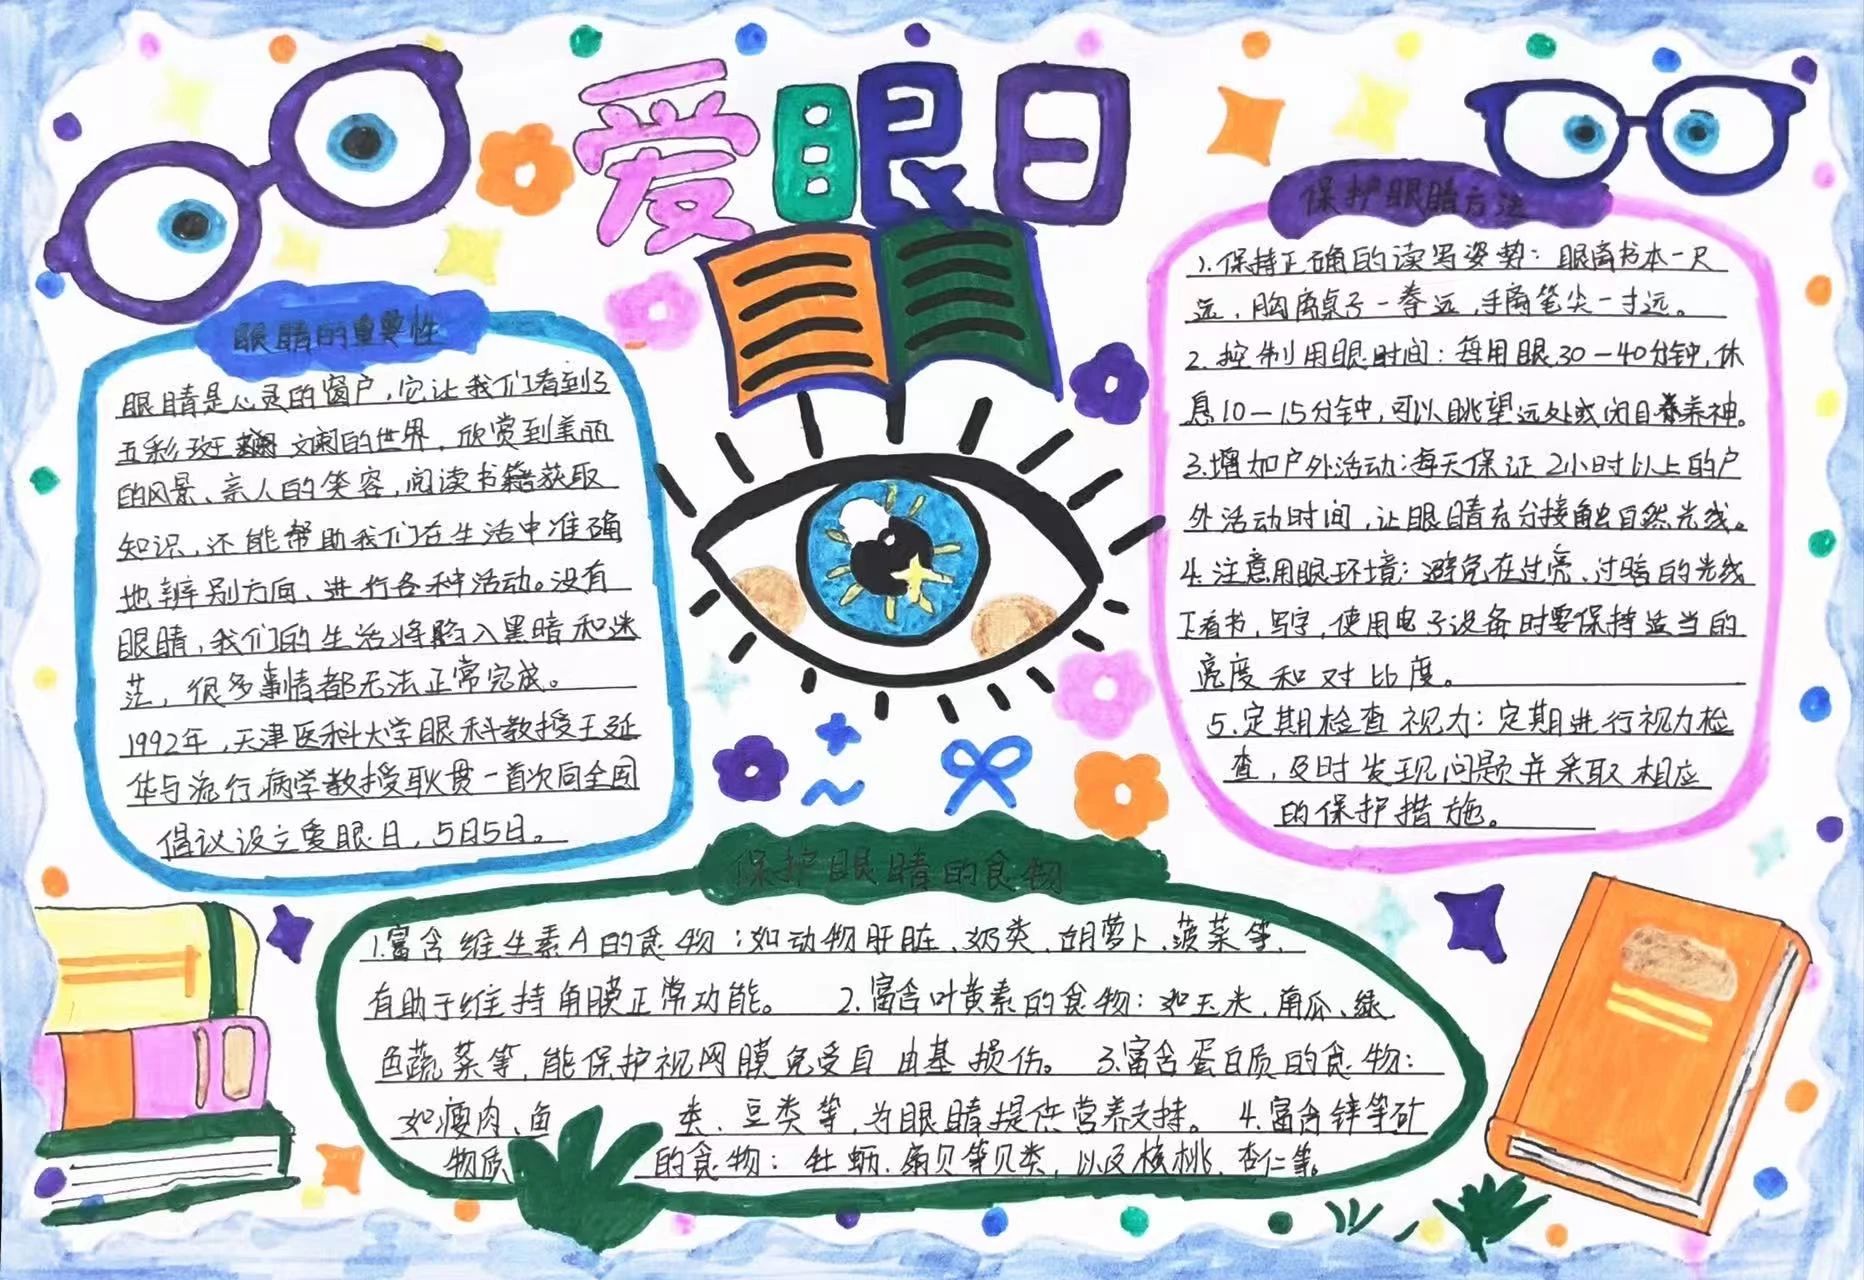 爱眼日
眼睛的重要性
眼睛是心灵的窗户,它让我们看到了
五彩斑斓的世界,欣赏到美丽
的风景、亲人的笑容,阅读书籍获取
知识,还能帮助我们在生活中准确
地辨别方向、进行各种活动。没有
眼睛,我们的生活将陷入黑暗和迷
茫,很多事情都无法正常完成。
1992年,天津医科大学眼科教授王延
华与流行病学教授耿贯一首次向全国
倡议设立爱眼日,5月5日。
保护眼睛方法
1.保持正确的读写姿势:眼离书本一尺
远,胸离桌子一拳远,手离笔尖一寸远。
2.控制用眼时间:每用眼30—40分钟,休
息10—15分钟,可以眺望远处或闭目养神。
3.增加户外活动:每天保证2小时以上的户
外活动时间,让眼睛充分接触自然光线。
4.注意用眼环境:避免在过亮、过暗的光线
下看书,写字,使用电子设备时要保持适当的
亮度和对比度。
5.定期检查视力:定期进行视力检
查,及时发现问题并采取相应
的保护措施。
保护眼睛的食物
1.富含维生素A的食物:如动物肝脏、奶类、胡萝卜、菠菜等,
有助于维持角膜正常功能。 2.富含叶黄素的食物:如玉米、南瓜、绿
色蔬菜等,能保护视网膜免受自由基损伤。 3.富含蛋白质的食物:
如瘦肉、鱼类、豆类等,为眼睛提供营养支持。 4.富含锌等矿
物质的食物:牡蛎、扇贝等贝类,以及核桃、杏仁等。